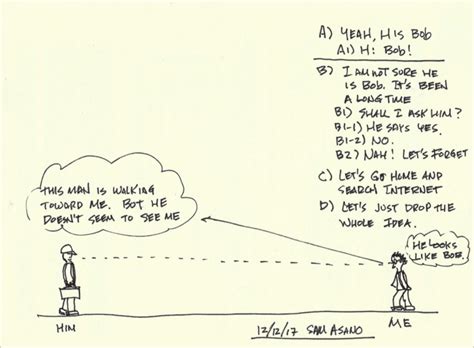 A) YEAH, HIS BOB
A1) Hi BOB!
B) I AM NOT SURE HE
IS BOB. IT'S BEEN
A LONG TIME
B1) SHALL I ASK HIM?
B1-1) HE SAYS YES.
B1-2) NO.
B2) NAH! LET'S FORGET
C) LET'S GO HOME AND
SEARCH INTERNET
D) LET'S JUST DROP THE
WHOLE IDEA.
THIS MAN IS WALKING
TOWARD ME. BUT HE
DOESN'T SEEM TO SEE ME
HE LOOKS
LIKE BOB.
HIM
ME
12/12/17 SAM ASANO